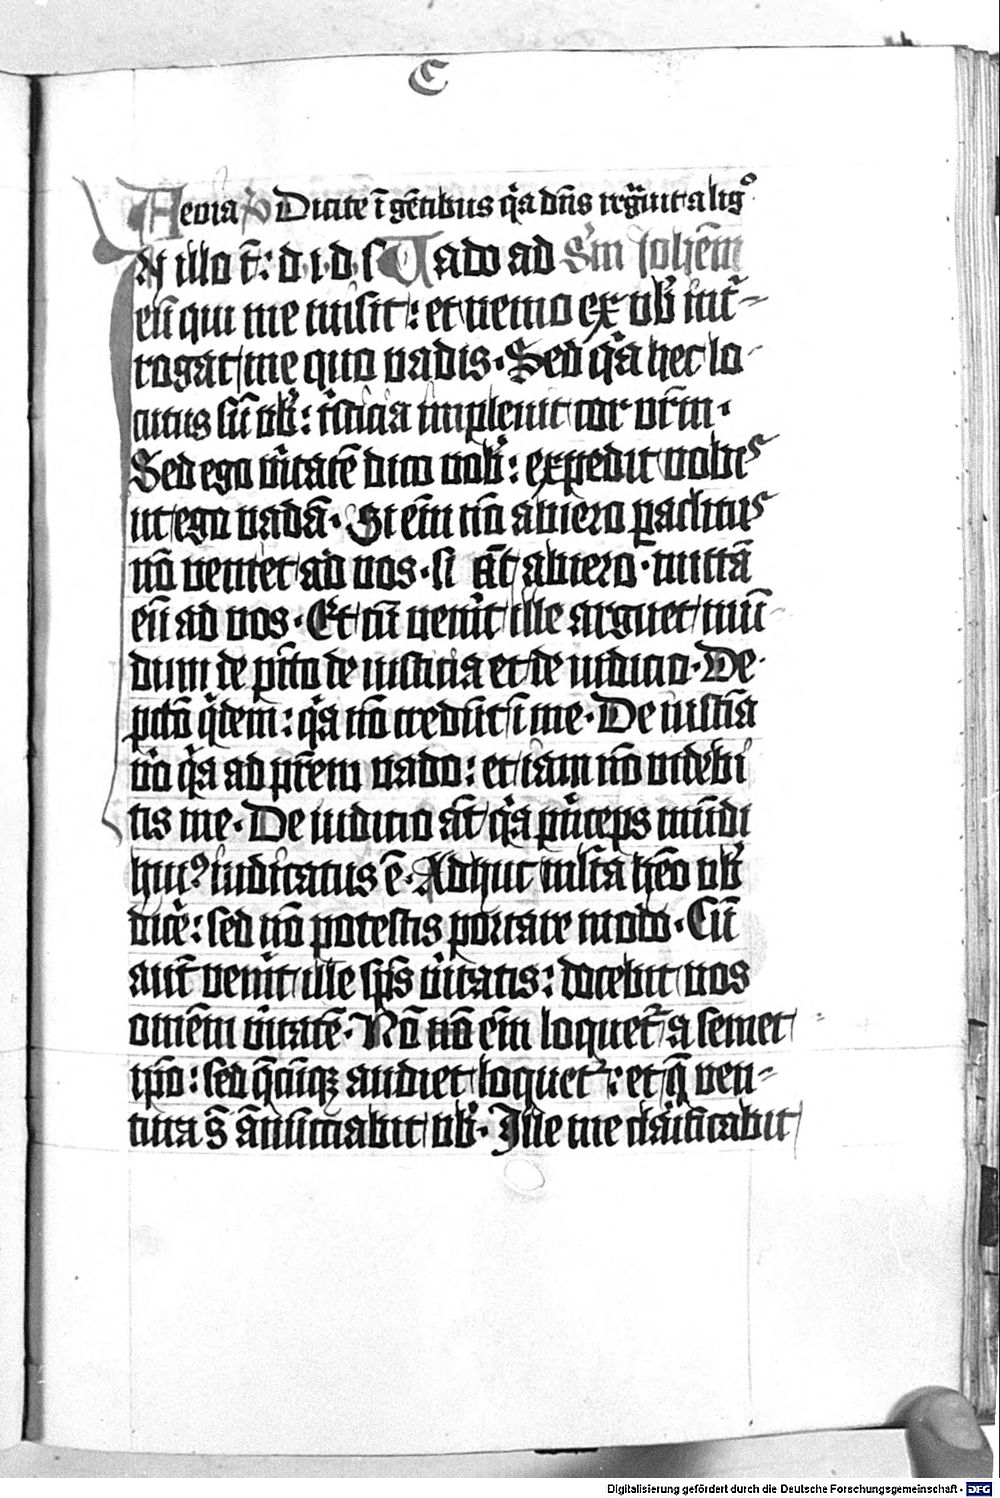 C
Aeuia ℣ Dicite ī gētibus qͥa dn̄s reg̃uit a lig°
N illo t̄: d. i. d. s. Uado ad Sm̄ Joh̄em
eū qui me misit: et nemo ex vob̉ int̾-
rogat me quo vadis. Sed qͥa hec lo-
cutus sū vob̉: tͥsticia impleuit cor vr̄m.
Sed ego v̾itatē dico vob̉: expedit vobis
ut ego vadā. Si em̄ nō abiero paclitus
nō veniet ad vos. si aūt abiero. mittā
eū ad vos. Et cū ven̾it ille arguet mū-
dum de pctō de iusticia et de iudicio. De
pctō qͥdem: qͥa nō credūt ī me. De iustīa
v̾o qͥa ad pr̄em vado: et iam nō videbi
tis me. De iudicio aūt qͥa pͥnceps mūdi
huiꝰ iudicatus ē. Adhuc mlta hēo vob̉
dic̾e: sed nō potestis portare modo. Cū
aūt ven̾it ille sp̄s v̾itatis: docebit vos
omēm v̾itatē. Nō nō em̄ loquet̾ a semet
ip̄o: sed q̄cūqꝫ audiet loquet̾: et q̄ ven-
tura s̄ ānūciabit vob̉. Ille me clarificabit
Digitalisierung gefördert durch die Deutsche Forschungsgemeinschaft - DFG